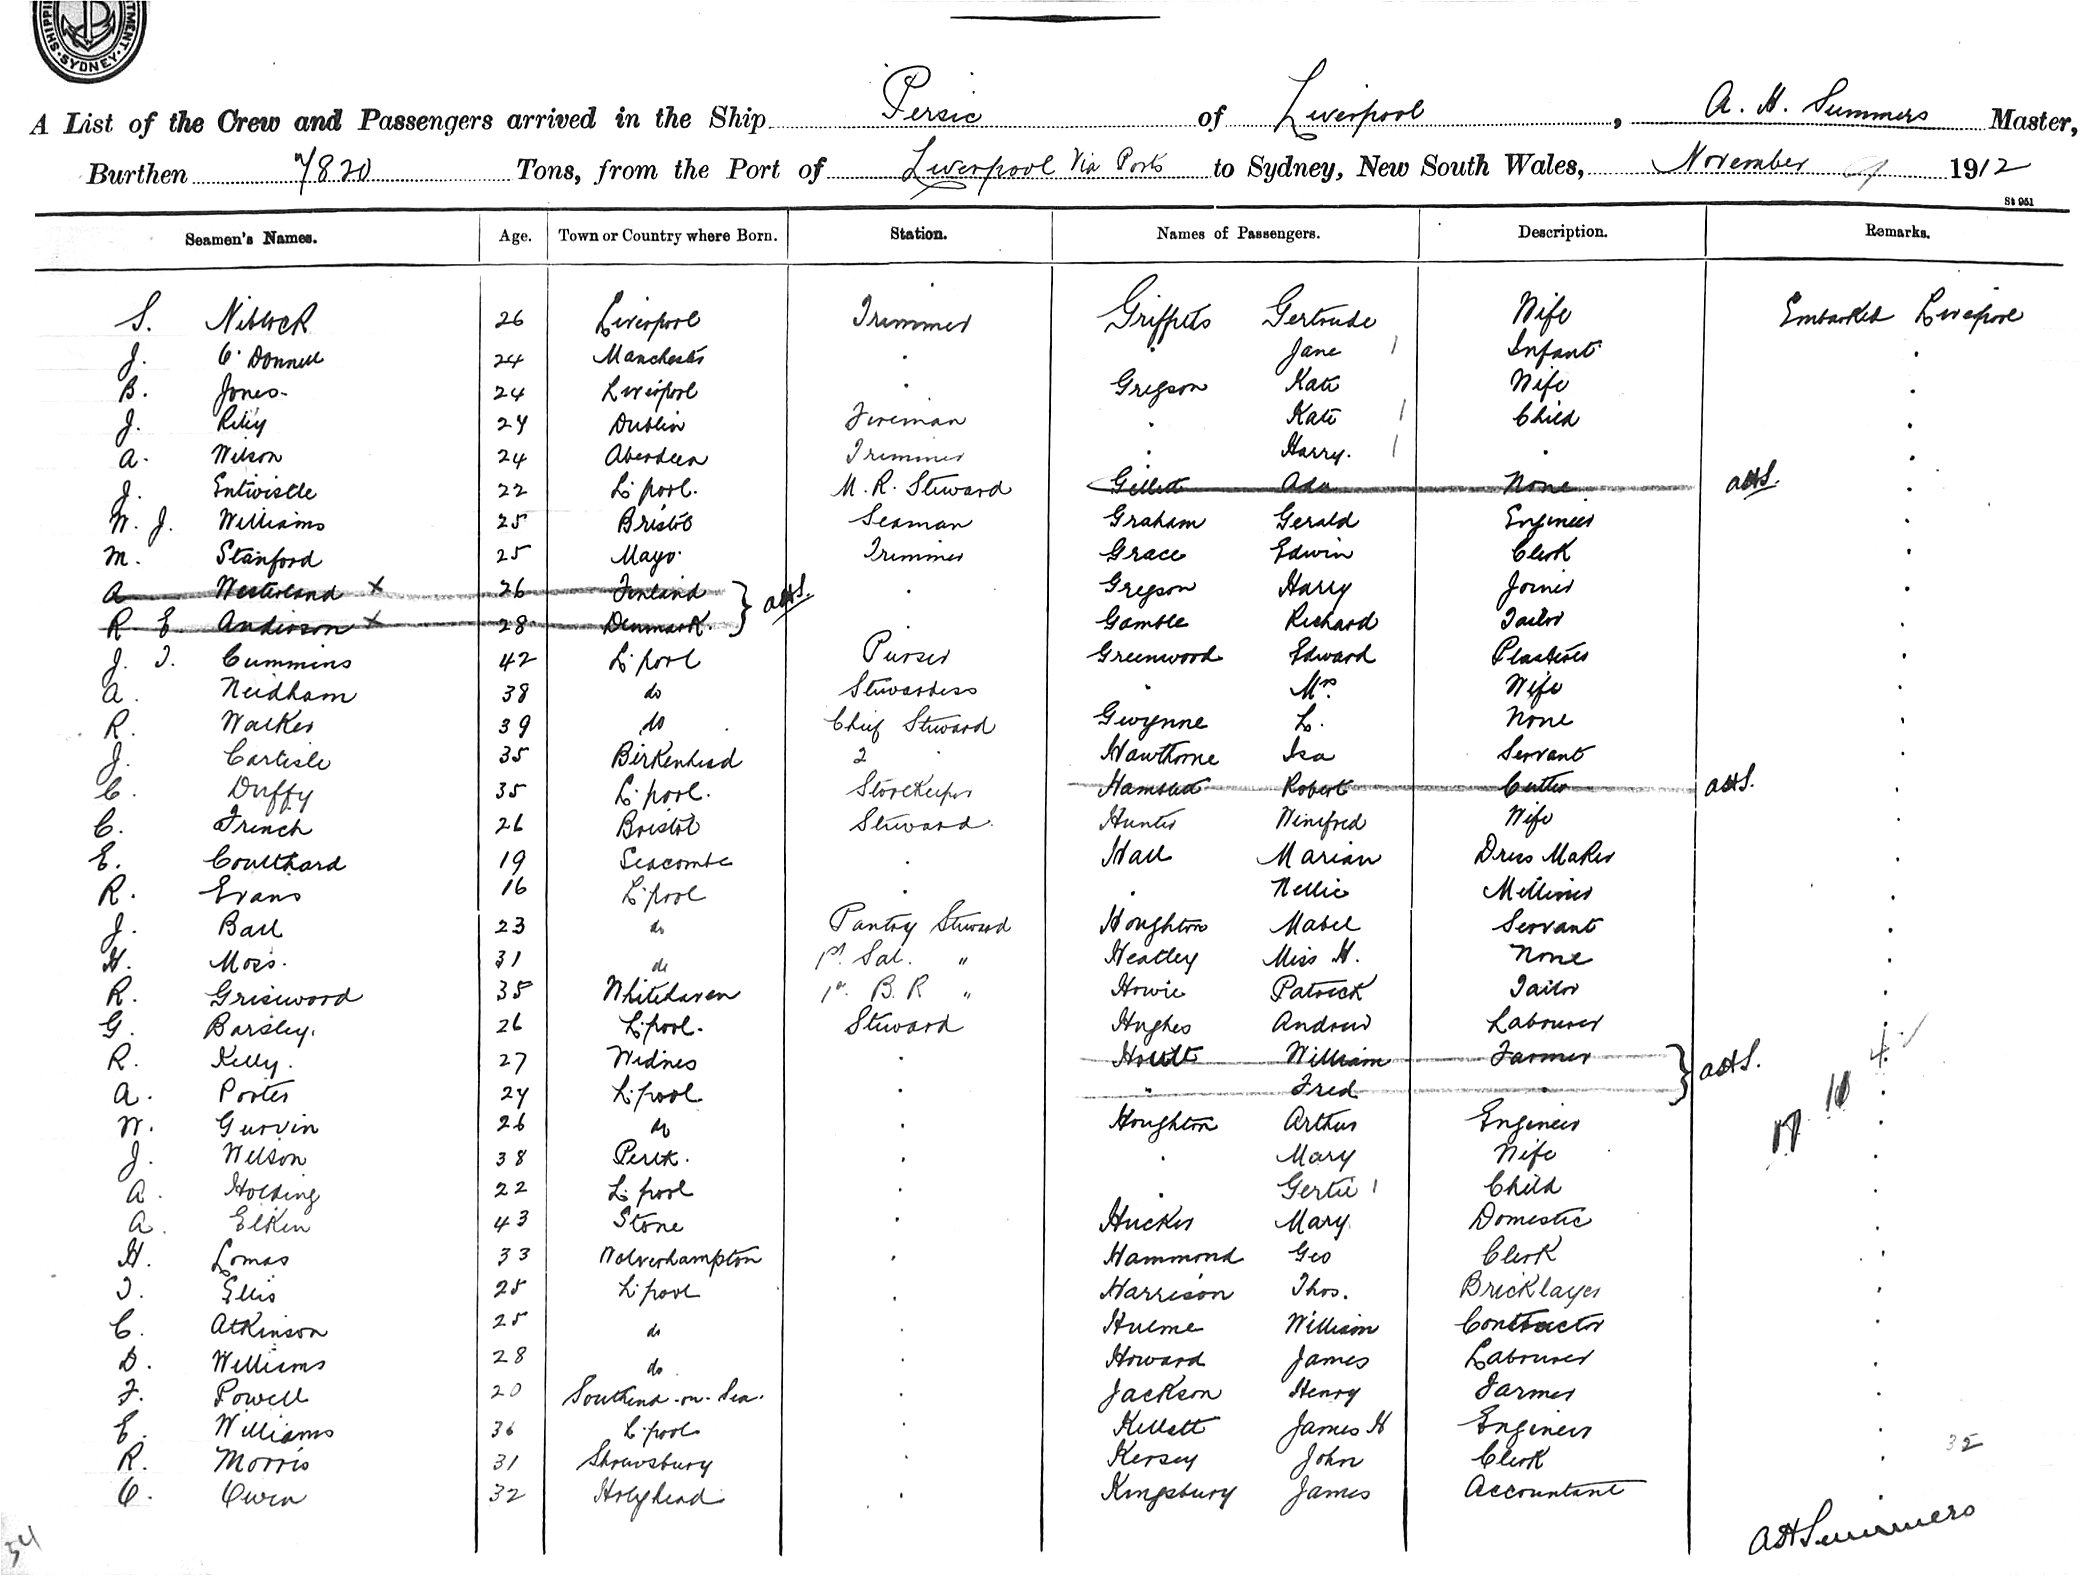 SHIPPING DEPARTMENT. SYDNEY.
A List of the Crew and Passengers arrived in the Ship Persic of Liverpool, A. H. Summers Master,
Burthen 7820 Tons, from the Port of Liverpool Via Ports to Sydney, New South Wales, November 9 1912
St 951
Seamen's Names. Age. Town or Country where Born. Station. Names of Passengers. Description. Remarks.
S. Niblock 26 Liverpool Trimmer Griffiths Gertrude Wife Embarked Liverpool
J. O'Donnell 24 Manchester . . Jane 1 Infant .
B. Jones. 24 Liverpool . Gregson Kate Wife .
J. Riley 24 Dublin Fireman . Kate 1 Child .
A. Wilson 24 Aberdeen Trimmer . Harry. 1 . .
J. Entwistle 22 L'pool. M. R. Steward Gillett Ada None AHS. .
W. J. Williams 25 Bristol Seaman Graham Gerald Engineer .
M. Stanford 25 Mayo. Trimmer Grace Edwin Clerk .
A Westerland x 26 Finland . Gregson Harry Joiner .
R E Anderson x 28 Denmark. } AHS. . Gamble Richard Tailor .
J. T. Cummins 42 L'pool Purser Greenwood Edward Plasterer .
A. Neidham 38 do Stewardess . Mrs. Wife .
R. Walker 39 do Chief Steward Gwynne L. None .
J. Carlisle 35 Birkenhead 2 . Hawthorne Isa Servant .
C. Duffy 35 L'pool. Storekeeper Hamsted Robert Cutter AHS. .
C. French 26 Bristol Steward. Hunter Winifred Wife .
E. Coulthard 19 Seacombe . Hall Marian Dress Maker .
R. Evans 16 L'pool . . Nellie Milliner .
J. Ball 23 do Pantry Steward Houghton Mabel Servant .
H. Moss. 31 do 1st. Sal. " Heatley Miss H. None .
R. Grisewood 35 Whitehaven 1st. B. R " Howie Patrick Tailor .
G. Barsley. 26 L'pool. Steward Hughes Andrew Labourer .
R. Kelly. 27 Widnes . Hoult William Farmer } AHS. 4.
A. Porter 24 L'pool . " Fred . 10 .
W. Gurvin 26 do . Houghton Arthur Engineer 17 .
J. Wilson 38 Perth. . . Mary Wife .
A. Holding 22 L'pool . . Gertie 1 Child .
A. Elkin 43 Stone . Hucker Mary Domestic .
H. Lomas 33 Wolverhampton . Hammond Geo Clerk .
T. Ellis 25 L'pool . Harrison Thos. Bricklayer .
C. Atkinson 25 do . Hulme William Contractor .
D. Williams 28 do . Howard James Labourer .
F. Powell 20 Southend-on-Sea. . Jackson Henry Farmer .
E. Williams 36 L'pool . Killett James H Engineer .
R. Morris 31 Shrewsbury . Kersey John Clerk . 32
O. Owen 32 Holyhead . Kingsbury James Accountant .
AHSummers
54